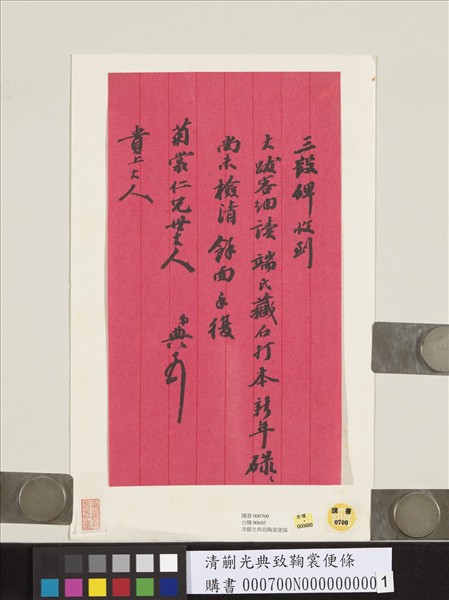 三段碑收到
大跋容細讀端氏藏石打本新年碌〻
尚未檢清餘面頌復
菊裳仁兄世大人
弟典頓
貴上大人
購書 000700
台購 00685
清蒯光典致鞠裳便條
台購
000685
購書
0700
清蒯光典致鞠裳便條
購書 000700N000000000
1